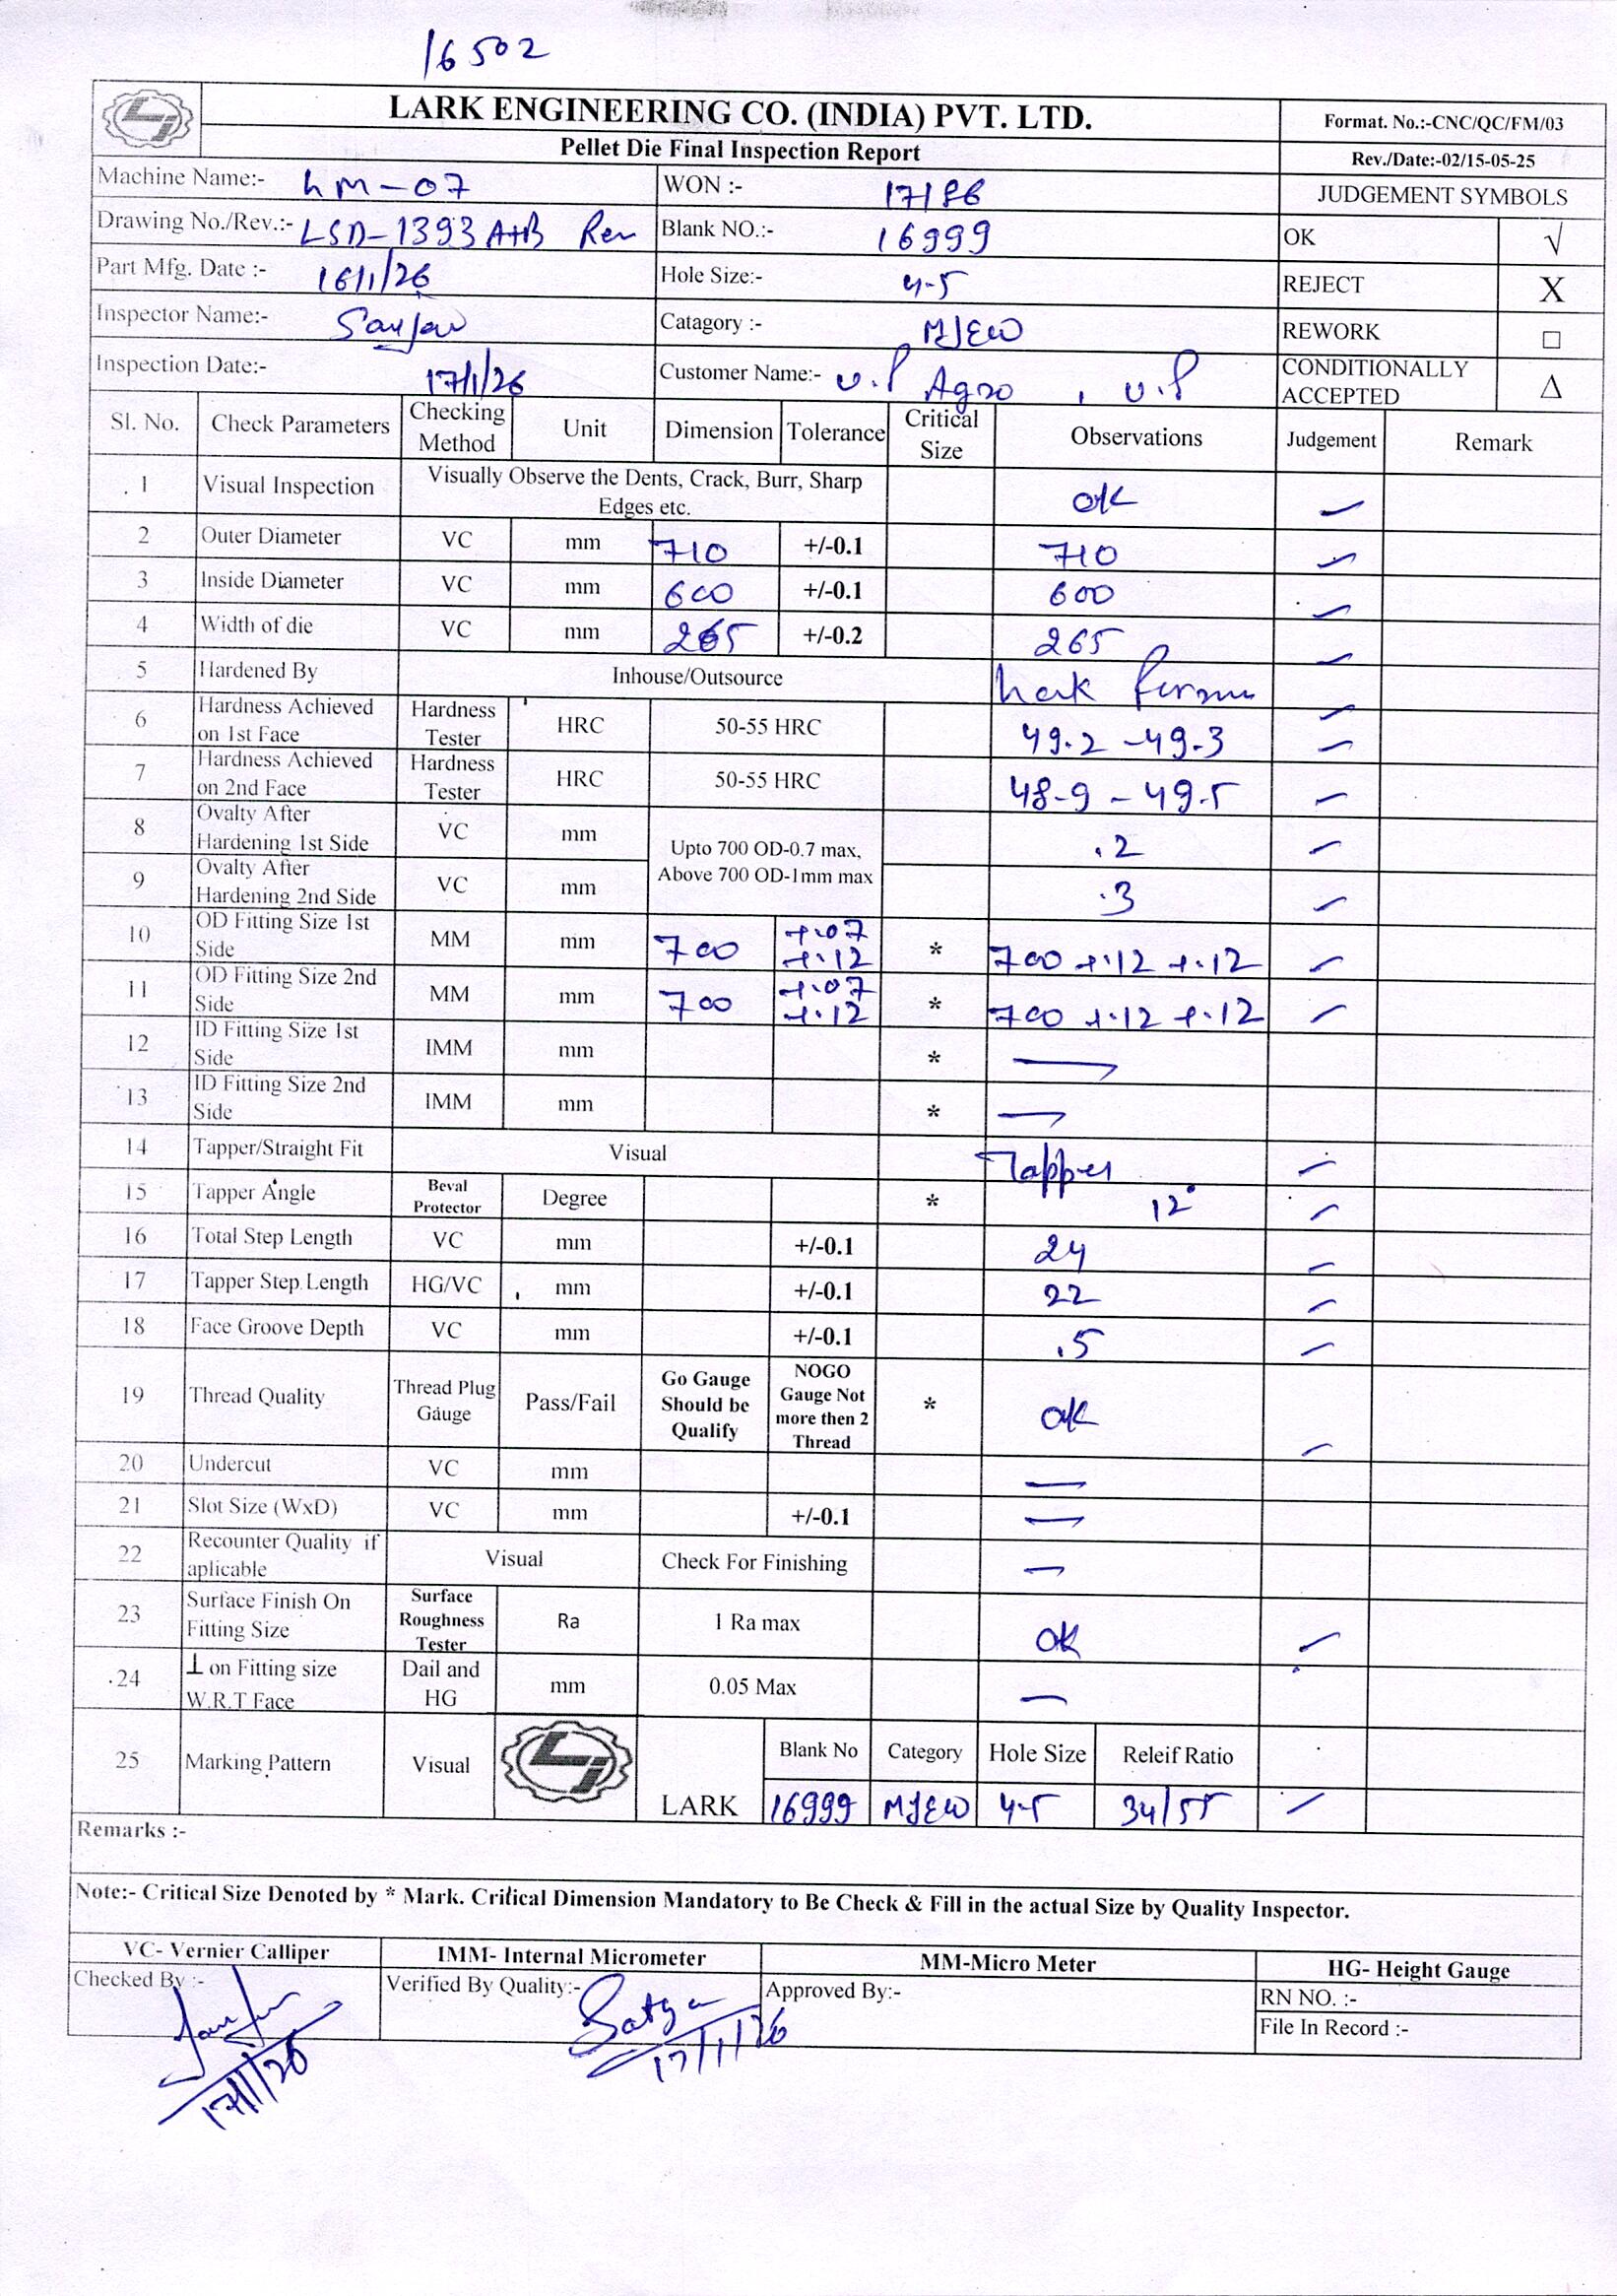 16502
LARK ENGINEERING CO. (INDIA) PVT. LTD.
Pellet Die Final Inspection Report
Format. No.:-CNC/QC/FM/03
Rev./Date:-02/15-05-25
Machine Name:- LM-07 WON :- 17186 JUDGEMENT SYMBOLS
Drawing No./Rev.:- LSD-1393 A+B Rev Blank NO.:- 16999 OK √
Part Mfg. Date :- 16/1/26 Hole Size:- 4.5 REJECT X
Inspector Name:- Catagory :- MJEW REWORK □
Inspection Date:- 17/1/26 Customer Name:- U.P Agro , U.P CONDITIONALLY ACCEPTED Δ
Sl. No. Check Parameters Checking Method Unit Dimension Tolerance Critical Size Observations Judgement Remark
1 Visual Inspection Visually Observe the Dents, Crack, Burr, Sharp Edges etc. ok
2 Outer Diameter VC mm 710 +/-0.1 710
3 Inside Diameter VC mm 600 +/-0.1 600
4 Width of die VC mm 265 +/-0.2 265
5 Hardened By Inhouse/Outsource
6 Hardness Achieved on 1st Face Hardness Tester HRC 50-55 HRC 49.2 - 49.3
7 Hardness Achieved on 2nd Face Hardness Tester HRC 50-55 HRC 48.9 - 49.5
8 Ovalty After Hardening 1st Side VC mm Upto 700 OD-0.7 max, Above 700 OD-1mm max .2
9 Ovalty After Hardening 2nd Side VC mm .3
10 OD Fitting Size 1st Side MM mm 700 +.07 +.12 * 700 +.12 +.12
11 OD Fitting Size 2nd Side MM mm 700 +.07 +.12 * 700 +.12 +.12
12 ID Fitting Size 1st Side IMM mm * —
13 ID Fitting Size 2nd Side IMM mm * —
14 Tapper/Straight Fit Visual Tapper
15 Tapper Angle Beval Protector Degree * 12°
16 Total Step Length VC mm +/-0.1 24
17 Tapper Step Length HG/VC mm +/-0.1 22
18 Face Groove Depth VC mm +/-0.1 .5
19 Thread Quality Thread Plug Gauge Pass/Fail Go Gauge Should be Qualify NOGO Gauge Not more then 2 Thread * ok
20 Undercut VC mm —
21 Slot Size (WxD) VC mm +/-0.1 —
22 Recounter Quality if aplicable Visual Check For Finishing —
23 Surface Finish On Fitting Size Surface Roughness Tester Ra 1 Ra max ok
24 ⊥ on Fitting size W.R.T Face Dail and HG mm 0.05 Max —
25 Marking Pattern Visual LARK Blank No Category Hole Size Releif Ratio
16999 MJEW 4.5 34/55
Remarks :-
Note:- Critical Size Denoted by * Mark. Critical Dimension Mandatory to Be Check & Fill in the actual Size by Quality Inspector.
VC- Vernier Calliper IMM- Internal Micrometer MM-Micro Meter HG- Height Gauge
Checked By :- Verified By Quality:- Satya Approved By:- RN NO. :-
File In Record :-
17/1/26 17/1/26